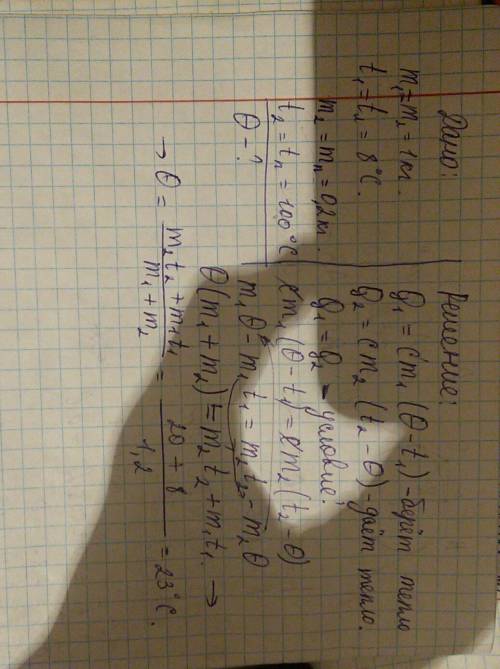 Дано:
m₁ = m₂ = 1кг.
t₁ = t₂ = 8°C.
m₂ = mₙ = 0,2кг.
t₂ = tₙ = 100°C
θ - ?
Решение:
Q₁ = cm₁ (θ - t₁) - берёт тепло
Q₂ = cm₂ (t₂ - θ) - даёт тепло.
Q₁ = Q₂ - условие!
cm₁ (θ - t₁) = cm₂ (t₂ - θ)
m₁ θ - m₁ t₁ = m₂ t₂ - m₂ θ
θ (m₁ + m₂) = m₂ t₂ + m₁ t₁. →
→ θ = (m₂ t₂ + m₁ t₁) / (m₁ + m₂) = (20 + 8) / 1,2 = 23°C.